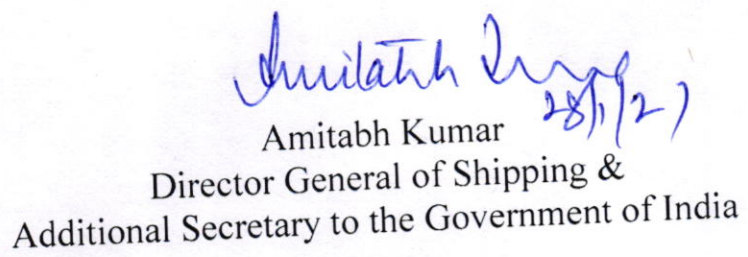 Amitabh Kumar
28/1/21
Amitabh Kumar
Director General of Shipping &
Additional Secretary to the Government of India